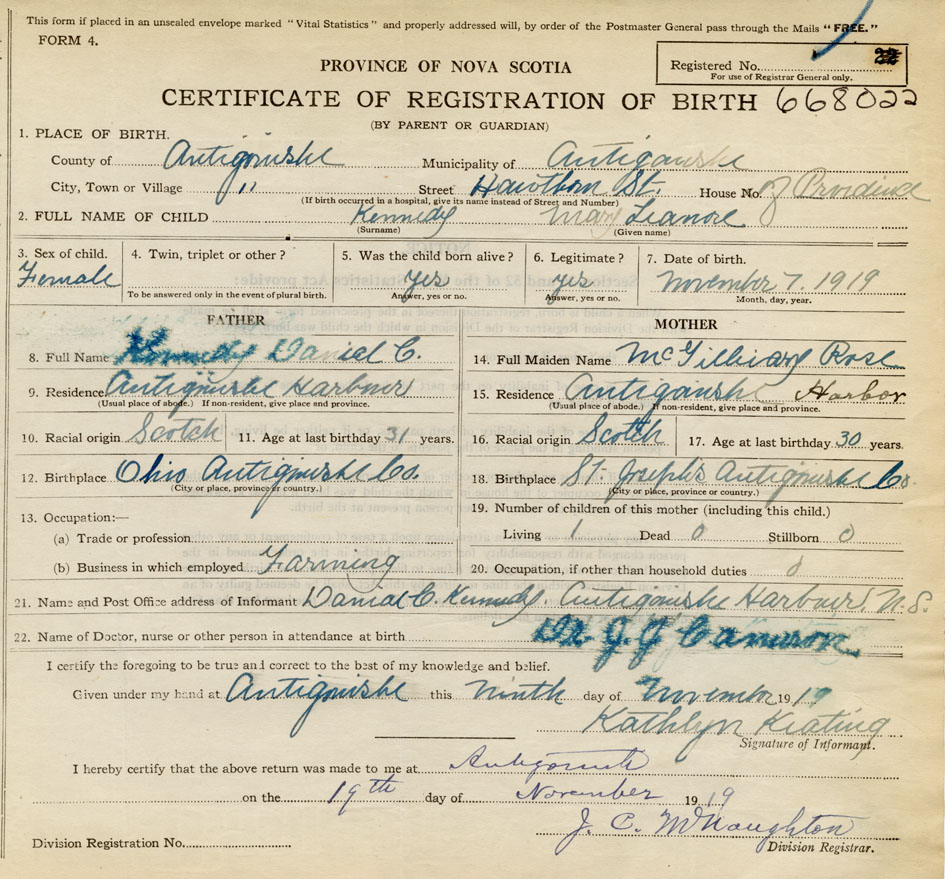 This form if placed in an unsealed envelope marked "Vital Statistics" and properly addressed will, by order of the Postmaster General pass through the Mails "FREE."
FORM 4.
Registered No. 22
For use of Registrar General only.
PROVINCE OF NOVA SCOTIA
CERTIFICATE OF REGISTRATION OF BIRTH 668022
(BY PARENT OR GUARDIAN)
1. PLACE OF BIRTH.
County of Antigonishe Municipality of Antigonishe
City, Town or Village " Street Hawthorn St. House No. of Providence
(If birth occurred in a hospital, give its name instead of Street and Number)
2. FULL NAME OF CHILD Kennedy Mary Leanore
(Surname) (Given name)
3. Sex of child. 4. Twin, triplet or other? 5. Was the child born alive? 6. Legitimate? 7. Date of birth.
Female yes yes November 7. 1919
To be answered only in the event of plural birth. Answer, yes or no. Answer, yes or no. Month, day, year.
FATHER MOTHER
8. Full Name Kennedy Danial C. 14. Full Maiden Name McGillivary Rose
9. Residence Antigonishe Harbour 15. Residence Antigonishe Harbor
(Usual place of abode.) If non-resident, give place and province. (Usual place of abode.) If non-resident, give place and province.
10. Racial origin Scotch 11. Age at last birthday 31 years. 16. Racial origin Scotch 17. Age at last birthday 30 years.
12. Birthplace Ohio Antigonishe Co. 18. Birthplace St. Joseph's Antigonishe Co.
(City or place, province or country.) (City or place, province or country.)
13. Occupation:— 19. Number of children of this mother (including this child.)
(a) Trade or profession Living 1 Dead 0 Stillborn 0
(b) Business in which employed Farming 20. Occupation, if other than household duties 0
21. Name and Post Office address of Informant Danial C. Kennedy, Antigonishe Harbour, N.S.
22. Name of Doctor, nurse or other person in attendance at birth Dr. J. J. Cameron
I certify the foregoing to be true and correct to the best of my knowledge and belief.
Given under my hand at Antigonishe this Ninth day of November 1919
Kathlyn Keating
Signature of Informant.
I hereby certify that the above return was made to me at Antigonish
on the 19th day of November 1919
J. C. McNaughton
Division Registration No. Division Registrar.